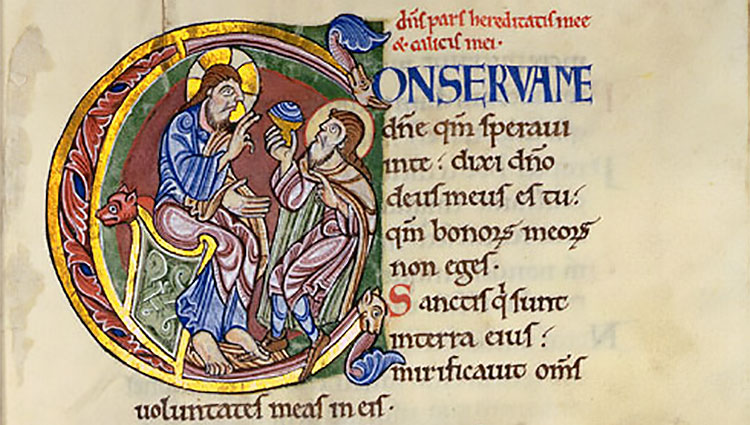 dn̄s pars hereditatis mee
& calicis mei·
CONSERVAME
dn̄e qm̄ speraui
inte: dixi dn̄o
deus meus es tu:
qm̄ bonorꝝ meorꝝ
non eges·
Sanctis qͥ sunt
interra eius:
mirificauit om̄s
voluntates meas in eis·